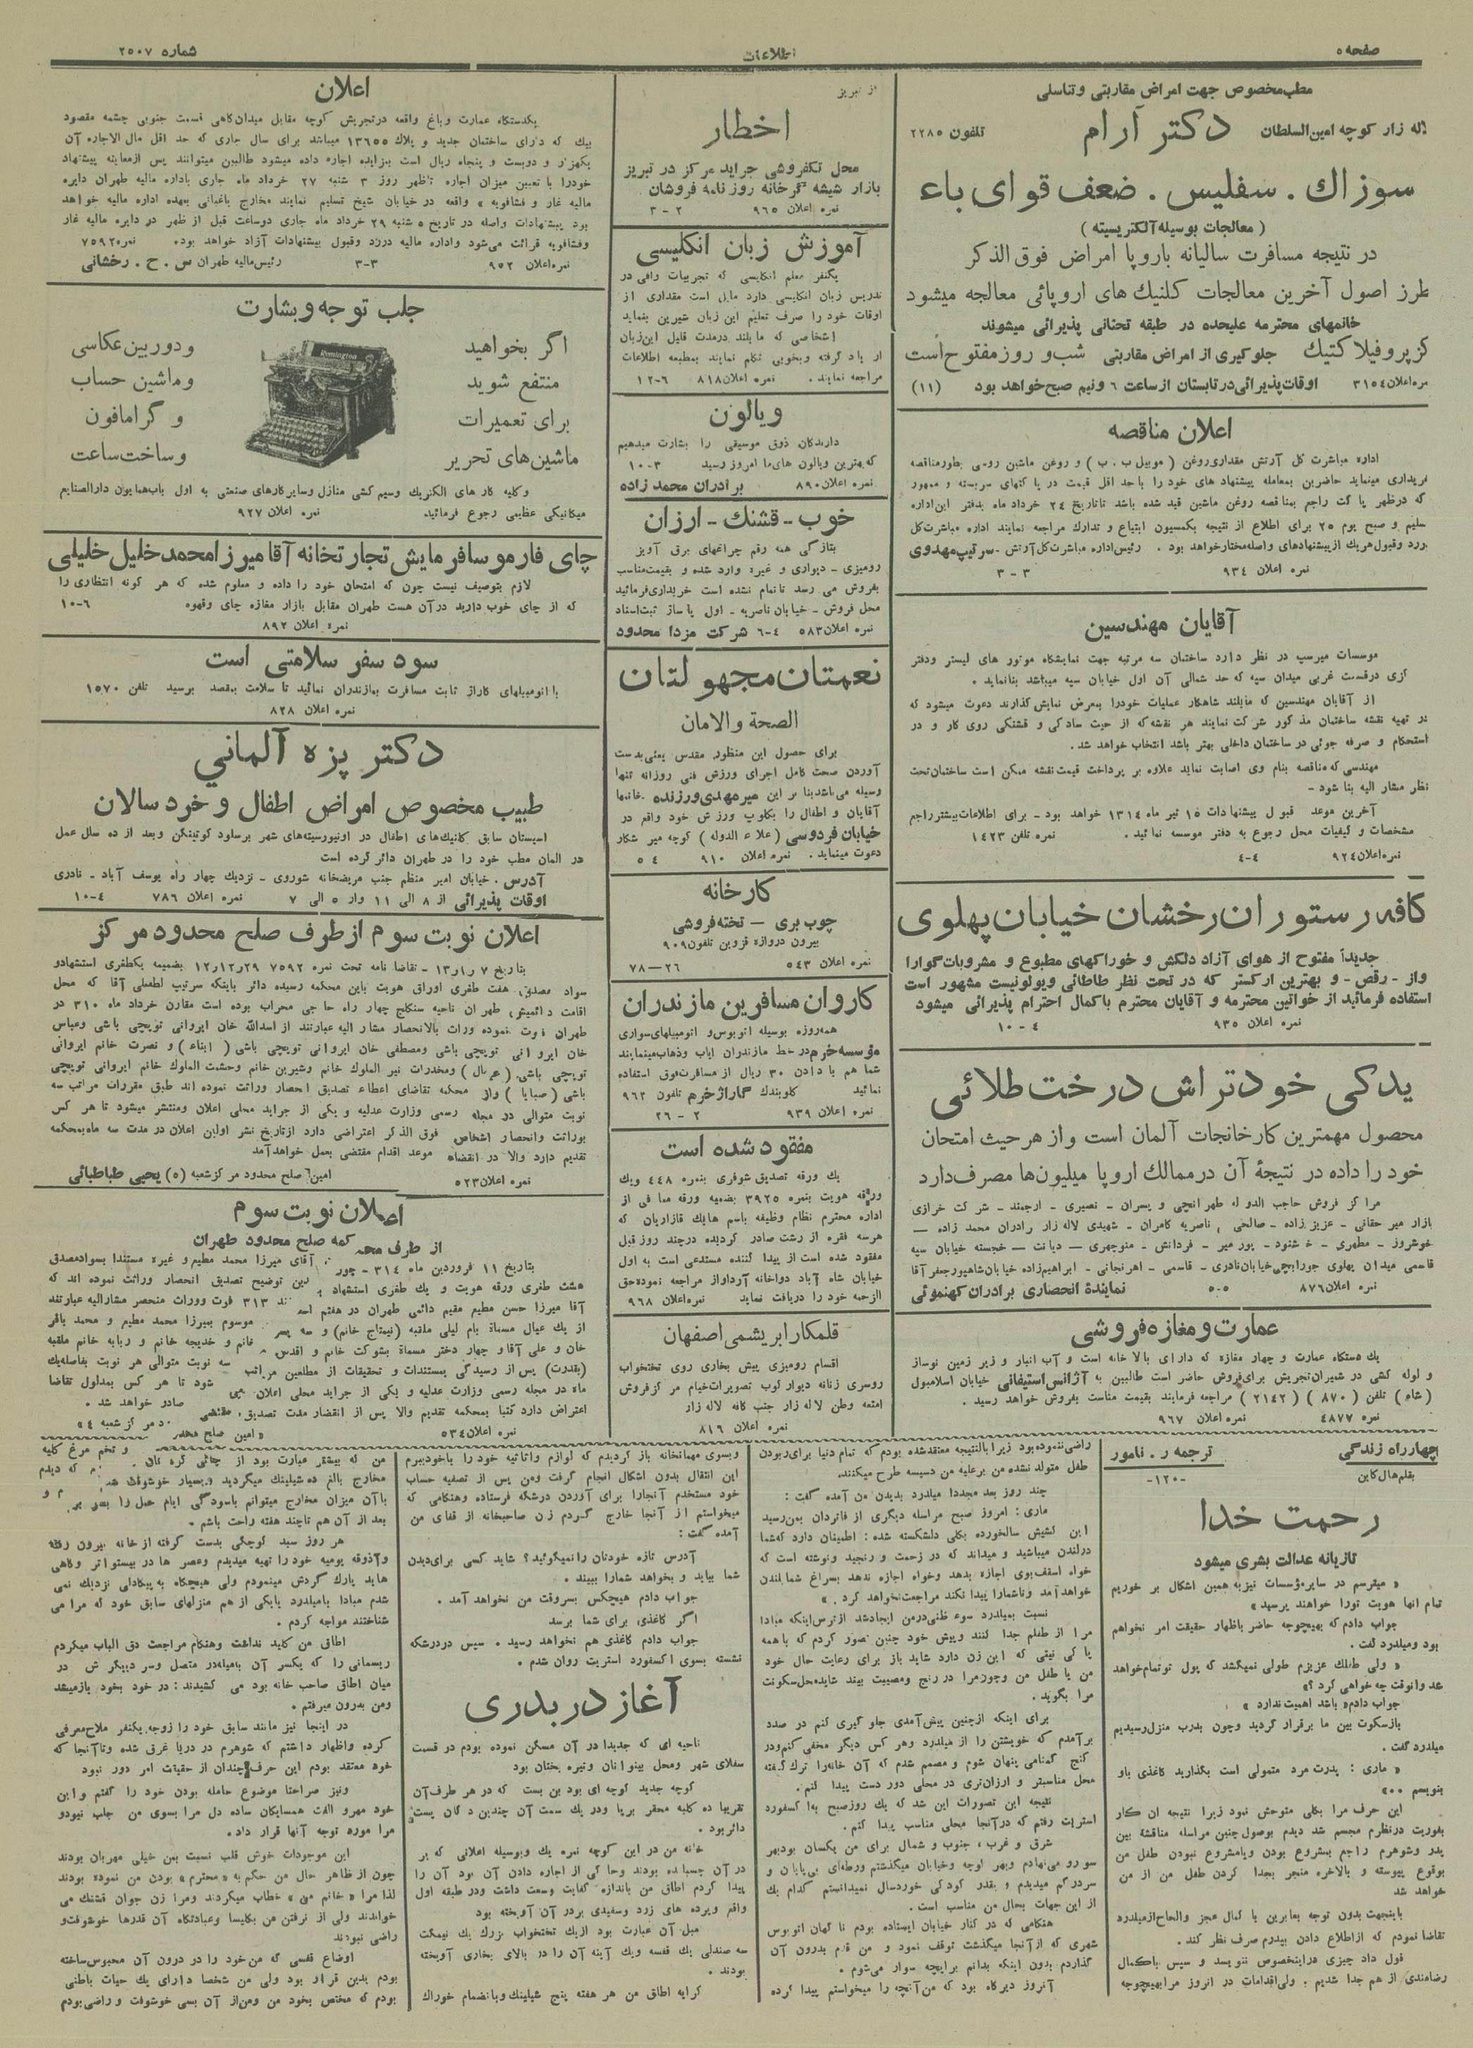 صفحه ۵
اطلاعات
شماره ۲۵۰۷
مطب مخصوص جهت امراض مقاربتی و تناسلی
لاله زار کوچه امین السلطان دکتر آرام تلفون ۲۲۸۵
سوزاك . سفلیس . ضعف قوای باء
( معالجات بوسیله الکتریسیته )
در نتیجه مسافرت سالیانه باروپا امراض فوق الذکر
طرز اصول آخرین معالجات کلنیك های اروپائی معالجه میشود
خانمهای محترمه علیحده در طبقه تحتانی پذیرائی میشوند
کز پروفیلاکتیك جلوگیری از امراض مقاربتی شب و روز مفتوح است
مره اعلان ۳۱۵۴ اوقات پذیرائی در تابستان از ساعت ۶ ونیم صبح خواهد بود (۱۱)
اعلان مناقصه
اداره مباشرت کل آرتش مقداری روغن ( موبیل ب . ب ) و روغن ماشین روسی بطور مناقصه
خریداری مینماید حاضرین بمعامله پیشنهاد های خود را باحد اقل قیمت در پاکتهای سربسته و ممهور
که در ظهر پاکت راجع بمناقصه روغن ماشین قید شده باشد تا تاریخ ۲۴ خرداد ماه بدفتر این اداره
سلیم و صبح یوم ۲۵ برای اطلاع از نتیجه بکمسیون ابتیاع و تدارك مراجعه نمایند اداره مباشرت کل
ورد وقبول هریك از پیشنهادهای واصله مختار خواهد بود . رئیس اداره مباشرت کل آرتش - سرتیپ مهدوی
نمره اعلان ۹۳۴ ۳ - ۳
آقایان مهندسین
موسسات میرسپ در نظر دارد ساختمان سه مرتبه جهت نمایشگاه موتور های لیستر ودفتر
کزی در قسمت غربی میدان سپه که حد شمالی آن اول خیابان سپه میباشد بنا نماید .
از آقایان مهندسین که مایلند شاهکار عملیات خود را بمعرض نمایش گذارند دعوت میشود که
در تهیه نقشه ساختمان مذکور شرکت نمایند هر نقشه که از حیث سادگی و قشنگی روی کار و در
استحکام و صرفه جوئی در ساختمان داخلی بهتر باشد انتخاب خواهد شد .
مهندسی که مناقصه بنام وی اصابت نماید علاوه بر پرداخت قیمت نقشه ممکن است ساختمان تحت
نظر مشار الیه بنا شود -
آخرین موعد قبول پیشنهادات ۱۵ تیر ماه ۱۳۱۴ خواهد بود - برای اطلاعات بیشتر راجع
مشخصات و کیفیات محل رجوع به دفتر موسسه نمائید . نمره تلفن ۱۴۲۳
نمره اعلان ۹۲۴ ۴-۴
کافه رستوران رخشان خیابان پهلوی
جدیداً مفتوح از هوای آزاد دلکش و خوراکهای مطبوع و مشروبات گوارا
واز - رقص - و بهترین ارکستر که در تحت نظر طاطائی ویولونیست مشهور است
استفاده فرمائید از خواتین محترمه و آقایان محترم با کمال احترام پذیرائی میشود
نمره اعلان ۹۳۵ ۴ - ۱۰
یدکی خودتراش درخت طلائی
محصول مهمترین کارخانجات آلمان است و از هر حیث امتحان
خود را داده در نتیجهٔ آن در ممالك اروپا میلیون ها مصرف دارد
مراکز فروش حاجب الدوله طهرانچی و پسران - نصیری - ارجمند - شرکت خرازی
بازار میر حقانی - عزیز زاده - صالحی , ناصریه کامران - شهیدی لاله زار برادران محمد زاده -
خوشروز - مطهری - خشنود - پور میر - فردانش - منوچهری - دیانت - خجسته خیابان سپه
قاسمی میدان پهلوی جورابچی خیابان نادری - قاسمی - اهرنجانی - ابراهیم زاده خیابان شاهپور جعفر آقا
نمره اعلان ۸۷۶ ۵-۵ نماینده انحصاری برادران کهنموئی
عمارت و مغازه فروشی
یك دستگاه عمارت و چهار مغازه که دارای بالا خانه است و آب انبار و زیر زمین نوساز
و لوله کشی در شمیران تجریش برای فروش حاضر است طالبین به آژانس استیفانی خیابان اسلامبول
(شاه) تلفن ( ۸۷۰ ) ( ۲۱۴۲ ) مراجعه فرمایند بقیمت مناسب بفروش خواهد رسید .
نمره ۴۸۷۷ نمره اعلان ۹۶۷
از تبریز
اخطار
محل تکفروشی جراید مرکز در تبریز
بازار شیشه گرخانه روزنامه فروشان
نمره اعلان ۹۶۵ ۲ - ۳
آموزش زبان انگلیسی
یکنفر معلم انگلیسی که تجربیات وافی در
تدریس زبان انگلیسی دارد مایل است مقداری از
اوقات خود را صرف تعلیم این زبان شیرین بنماید
اشخاصی که مایلند در مدت قلیل این زبان
را یاد گرفته وبخوبی تکلم نمایند بمطبعه اطلاعات
مراجعه نمایند . نمره اعلان ۸۱۸ ۶-۱۲
ویالون
دارندگان ذوق موسیقی را بشارت میدهیم
که بهترین ویالون های ما امروز رسید ۳-۱۰
نمره اعلان ۸۹۰ برادران محمد زاده
خوب - قشنك - ارزان
بتازگی همه رقم چراغهای برق آویز
رومیزی - دیواری و غیره وارد شده و بقیمت مناسب
بفروش می رسد تا تمام نشده است خریداری فرمائید
محل فروش - خیابان ناصریه - اول پاساژ ثبت اسناد
نمره اعلان ۵۸۳ ۴-۶ شرکت مزدا محدود
نعمتان مجهولتان
الصحة والامان
برای حصول این منظور مقدس یعنی بدست
آوردن صحت کامل اجرای ورزش فنی روزانه تنها
وسیله می باشد بنا بر این میر مهدی ورزنده خانمها
آقایان و اطفال را بکلوپ ورزش خود واقع در
خیابان فردوسی (علاء الدوله) کوچه میر شکار
دعوت مینماید . نمره اعلان ۹۱۰ ۴ ۵
کارخانه
چوب بری - تخته فروشی
بیرون دروازه قزوین تلفون ۹۰۹
نمره اعلان ۵۴۳ ۲۶-۷۸
کاروان مسافرین مازندران
همه روزه بوسیله اتوبوس و اتومبیلهای سواری
مؤسسه خرم در خط مازندران ایاب وذهاب مینمایند
شما هم با دادن ۳۰ ریال از مسافرت فوق استفاده
نمائید کلوبندك گاراژ خرم تلفون ۹۶۲
نمره اعلان ۹۳۹ ۲ - ۲۶
مفقود شده است
یك ورقه تصدیق شوفری بنمره ۴۴۸ ویك
ورقه هویت بنمره ۳۹۲۵ بضمیمه ورقه معافی از
اداره محترم نظام وظیفه باسم هایك قازاریان که
هرسه فقره از رشت صادر گردیده در چند روز قبل
مفقود شده است از پیدا کننده مستدعی است به اول
خیابان شاه آباد دواخانه آرداواز مراجعه نموده حق
الزحمه خود را دریافت نماید نمره اعلان ۹۶۸
قلمکار ابریشمی اصفهان
اقسام رومیزی پیش بخاری روی تختخواب
روسری زنانه دیوار کوب تصویرات خیام مرکز فروش
امتعه وطن لاله زار جنب کافه لاله زار
نمره اعلان ۸۱۶
اعلان
یکدستگاه عمارت وباغ واقعه در تجریش کوچه مقابل میدان گاهی قسمت جنوبی چشمه مقصود
بیك که دارای ساختمان جدید و پلاك ۱۳۶۵۵ میباشد برای سال جاری که حد اقل مال الاجاره آن
یکهزار و دویست و پنجاه ریال است بمزایده اجاره داده میشود طالبین میتوانند پس از معاینه پیشنهاد
خود را با تعیین میزان اجاره تا ظهر روز ۳ شنبه ۲۷ خرداد ماه جاری باداره مالیه طهران دایره
مالیه غار و فشافویه » واقعه در خیابان شیخ تسلیم نمایند مخارج باغبانی بعهده اداره مالیه خواهد
بود پیشنهادات واصله در تاریخ ۵ شنبه ۲۹ خرداد ماه جاری دوساعت قبل از ظهر در دایره مالیه غار
وفشافویه قرائت می شود واداره مالیه در رد وقبول پیشنهادات آزاد خواهد بود . نمره ۷۵۹۲
نمره اعلان ۹۵۲ ۳-۳ رئیس مالیه طهران س . ح . رخشانی
جلب توجه و بشارت
اگر بخواهید
منتفع شوید
برای تعمیرات
ماشین های تحریر
Remington
ودوربین عکاسی
وماشین حساب
و گرامافون
و ساخت ساعت
وکلیه کار های الکتریك وسیم کشی منازل وسایر کارهای صنعتی به اول باب همایون دارالصنایع
میکانیکی عظیمی رجوع فرمائید . نمره اعلان ۹۲۷
چای فارموسا فرمایش تجارتخانه آقا میرزا محمد خلیل خلیلی
لازم بتوصیف نیست چون که امتحان خود را داده و معلوم شده که هر گونه انتظاری را
که از چای خوب دارید در آن هست طهران مقابل بازار مغازه چای وقهوه ۶-۱۰
نمره اعلان ۸۹۲
سود سفر سلامتی است
با اتومبیلهای گاراژ ثابت مسافرت بمازندران نمائید تا سلامت بمقصد برسید تلفن ۱۵۷۰
نمره اعلان ۸۲۸
دکتر پزه آلمانی
طبیب مخصوص امراض اطفال و خردسالان
اسیستان سابق کلنیك های اطفال در اونیورسیته های شهر برسلو و گوتینگن وبعد از ده سال عمل
در آلمان مطب خود را در طهران دائر کرده است
آدرس . خیابان امیر منظم جنب مریضخانه شوروی - نزدیك چهار راه یوسف آباد - نادری
اوقات پذیرائی از ۸ الی ۱۱ واز ۵ الی ۷ نمره اعلان ۷۸۶ ۴-۱۰
اعلان نوبت سوم از طرف صلح محدود مرکز
بتاریخ ۷ ر ۱ ر ۱۳ - تقاضا نامه تحت نمره ۷۵۹۲ ۲۹ر۱۲ر۱۲ بضمیمه یکطغری استشهاد و
سواد مصدق هفت طغری اوراق هویت باین محکمه رسیده دائر باینکه سرتیپ لطفعلی آقا که محل
اقامت دائمیش طهران ناحیه سنگلج چهار راه حاجی محراب بوده است مقارن خرداد ماه ۳۱۰ در
طهران فوت نموده وراث بالانحصار مشار الیه عبارتند از اسدالله خان ایروانی توپچی باشی وعباس
خان ایروانی توپچی باشی ومصطفی خان ایروانی توپچی باشی ( ابناء ) و نصرت خانم ایروانی
توپچی باشی ( عیال ) ومخدرات نیر الملوك خانم وشیرین خانم وحشمت الملوك خانم ایروانی توپچی
باشی ( صبایا ) واز محکمه تقاضای اعطاء تصدیق انحصار وراثت نموده اند طبق مقررات مراتب سه
نوبت متوالی در مجله رسمی وزارت عدلیه و یکی از جراید محلی اعلان ومنتشر میشود تا هر کس
بوراثت وانحصار اشخاص فوق الذکر اعتراضی دارد از تاریخ نشر اولین اعلان در مدت سه ماه بمحکمه
تقدیم دارد والا در انقضاء موعد اقدام مقتضی بعمل خواهد آمد
نمره اعلان ۵۲۳ امین صلح محدود مرکز شعبه (۵) یحیی طباطبائی
اعلان نوبت سوم
از طرف محکمه صلح محدود طهران
بتاریخ ۱۱ فروردین ماه ۳۱۴ - چون آقای میرزا محمد مطیم و غیره مستندا بسواد مصدق
هشت طغری ورقه هویت و یك طغری استشهاد توضیح تصدیق انحصار وراثت نموده اند که
آقا میرزا حسن مطیم مقیم دائمی طهران در هفتم ۳۱۳ فوت ووراث منحصر مشارالیه عبارتند
از یك عیال مسماة بام لیلی ملقبه (نیمتاج خانم) و سه پسر موسوم بمیرزا محمد مطیم و محمد باقر
خان و علی آقا و چهار دختر مسماة بشوکت خانم و اقدس خانم و خدیجه خانم و ربابه خانم ملقبه
(بقدرت) پس از رسیدگی بمستندات و تحقیقات از مطلعین مراتب سه نوبت متوالی هر نوبت بفاصله یك
ماه در مجله رسمی وزارت عدلیه و یکی از جراید محلی اعلان می شود تا هر کس بمدلول تقاضا
اعتراض دارد کتبا بمحکمه تقدیم والا پس از انقضاء مدت تصدیق مقتضی صادر خواهد شد .
نمره اعلان ۵۳۴
چهار راه زندگی
بقلم هال کاین
ترجمه ر . نامور
-۱۲۰-
رحمت خدا
تازیانه عدالت بشری میشود
« میترسم در سایر مؤسسات نیز به همین اشکال بر خوریم
تمام آنها هویت تورا خواهند پرسید »
جواب دادم که بهیچوجه حاضر باظهار حقیقت امر نخواهم
بود ومیلدرد گفت .
« ولی طفلك عزیزم طولی نمیکشد که پول تو تمام خواهد
شد و آنوقت چه خواهی کرد ؟»
جواب دادم« باشد اهمیت ندارد »
بازسکوت بین ما برقرار گردید وچون بدرب منزل رسیدیم
میلدرد گفت .
« ماری : پدرت مرد متمولی است بگذارید کاغذی باو
بنویسم ۰۰»
این حرف مرا بکلی متوحش نمود زیرا نتیجه آن کار
بفوریت در نظرم مجسم شد دیدم بوصول چنین مراسله مناقشهٔ بین
پدر وشوهرم راجع بشروع بودن ویا مشروع نبودن طفل من
بوقوع پیوسته و بالاخره منجر بجدا کردن طفل من از من
خواهد شد
باینجهت بدون توجه بمابرین با کمال عجز والحاح از میلدرد
تقاضا نمودم که از اطلاع دادن بپدرم صرف نظر کند .
قول داد چیزی در اینخصوص ننویسد و سپس با کمال
رضامندی از هم جدا شدیم . ولی اقدامات در آنروز مرا بهیچوجه
راضی ننموده بود زیرا بالنتیجه معتقد شده بودم که تمام دنیا برای ربودن
طفل متولد نشده من بر علیه من دسیسه طرح میکنند .
چند روز بعد مجددا میلدرد بدیدن من آمده گفت :
ماری : امروز صبح مراسله دیگری از فادردان بمن رسید
این کشیش سالخورده بکلی دلشکسته شده : اطمینان دارد که شما
در لندن میباشید و میداند که در زحمت و رنجید و نوشته است که
خواه اسقف بوی اجازه بدهد وخواه اجازه ندهد بسراغ شما بلندن
خواهد آمد وتا شما را پیدا نکند مراجعت نخواهد کرد .»
نسبت بمیلدرد سوء ظنی در من ایجاد شد از ترس اینکه مبادا
مرا از طفلم جدا کنند وپیش خود چنین تصور کردم که با همه
پاکی نیتی که این زن دارد شاید باز برای رعایت حال خود
من یا طفل من وچون مرا در رنج و مصیبت بیند شاید محل سکونت
مرا بگوید .
برای اینکه از چنین پیش آمدی جلو گیری کنم در صدد
برآمدم که خویشتن را از میلدرد وهر کس دیگر مخفی کنم و در
کنج گمنامی پنهان شوم و مصمم شدم که آن خانه را ترك گفته
محل مناسبتر و ارزان تری در محلی دور دست پیدا کنم .
نتیجه این تصورات این شد که یك روز صبح به اکسفورد
استریت رفتم که در آنجا محلی مناسب پیدا کنم .
شرق و غرب ، جنوب و شمال برای من یکسان بود بهر
سو رو مینهادم وبهر کوچه وخیابان میگذشتم ورطه ای بی پایان و
سر درگم میدیدم و بقدر کودکی خوردسال نمیدانستم کدام یك
از این جهات بحال من مناسب است .
هنگامی که در کنار خیابان ایستاده بودم نا گهان اتوبوس
شهری که از آنجا میگذشت توقف نمود و من قدم بدرون آن
گذاردم بدون اینکه بدانم براچه سوار می شوم .
آنروز دیرگاه بود که من آنچه را میخواستم پیدا کرده
وبسوی مهمانخانه باز گردیدم که لوازم واثاثیه خود را با خود ببرم
این انتقال بدون اشکال انجام گرفت ومن پس از تصفیه حساب
خود مستخدم آنجا را برای آوردن درشکه فرستاده وهنگامی که
میخواستم از آنجا خارج گردم زن صاحبخانه از قفای من
آمده گفت :
آدرس تازه خودتان را نمیگوئید؟ شاید کسی برای دیدن
شما بیاید و بخواهد شما را ببیند .
جواب دادم هیچکس بسروقت من نخواهد آمد .
اگر کاغذی برای شما برسد
جواب دادم کاغذی هم نخواهد رسید . سپس در درشکه
نشسته بسوی اکسفورد استریت روان شدم .
آغاز دربدری
ناحیه ای که جدیدا در آن مسکن نموده بودم در قسمت
سفلای شهر ومحل بینوایان وتیره بختان بود
کوچه جدید کوچه ای بود بن بست که در هر طرف آن
تقریبا ده کلبه محقر برپا ودر یك سمت آن چندین دکان پست
دائر بود .
خانه من در این کوچه نمره یك وبوسیله اعلانی که بر
در آن چسبانده بودند وحاکی از اجاره دادن آن بود آن را
پیدا کردم اطاق من باندازه کفایت وسعت داشت ودر طبقه اول
واقع وپرده های زرد وسفیدی بر در آن آویخته بود
مبل آن عبارت بود از یك تختخواب بزرك یك نیمکت
سه صندلی یك قفسه ویك آینه آن را در بالای بخاری آویخته
بودند .
کرایه اطاق من هر هفته پنج شیلینك وبا انضمام خوراك
من که بیشتر عبارت بود از چائی و تخم مرغ کلیه
مخارج بالغ ده شیلینك میگردید وبسیار خوشوقت که دیدم
با آن میزان مخارج میتوانم باسودگی ایام حمل را بسر برم و
بعد از آن هم تا چند هفته راحت باشم .
هر روز سبد کوچکی بدست گرفته از خانه بیرون رفته
وآذوقه یومیه خود را تهیه میدیدم وعصر ها در بیستواتر وگاهی
هاید پارك گردش مینمودم ولی هیچگاه به پیکادلی نزدیك نمی
شدم مبادا با میلدرد یا یکی از هم منزلهای سابق خود که مرا می
شناختند مواجه گردم .
اطاق من کلید نداشت وهنگام مراجعت دق الباب میکردم
ریسمانی را که یکسر آن بامیله در متصل وسر دیگرش در
میان اطاق صاحب خانه بود می کشیدند : در خود بخود باز میشد
ومن بدرون میرفتم .
در اینجا نیز مانند سابق خود را زوجه یکنفر ملاح معرفی
کرده واظهار داشتم که شوهرم در دریا غرق شده وتا آنجا که
خود معتقد بودم این حرف چندان از حقیقت امر دور نبود
ونیز صراحتا موضوع حامله بودن خود را گفتم و این
خود مهر و الفت همسایگان ساده دل مرا بسوی من جلب نمود و
مرا مورد توجه آنها قرار داد .
این موجودات خوش قلب نسبت بمن خیلی مهربان بودند
چون از ظاهر حال من حکم به « محترم » بودن من نموده بودند
لذا مرا « خانم من » خطاب میکردند ومرا زن جوان قشنك می
خواندند ولی از نرفتن من بکلیسا وعبادتگاه آن قدرها خوشوقت و
راضی نبودند
اوضاع قفسی که من خود را در درون آن محبوس ساخته
بودم بدین قرار بود ولی من شخصا دارای یك حیات باطنی
بودم که مختص بخود من ومن از آن بسی خوشوقت و راضی بودم